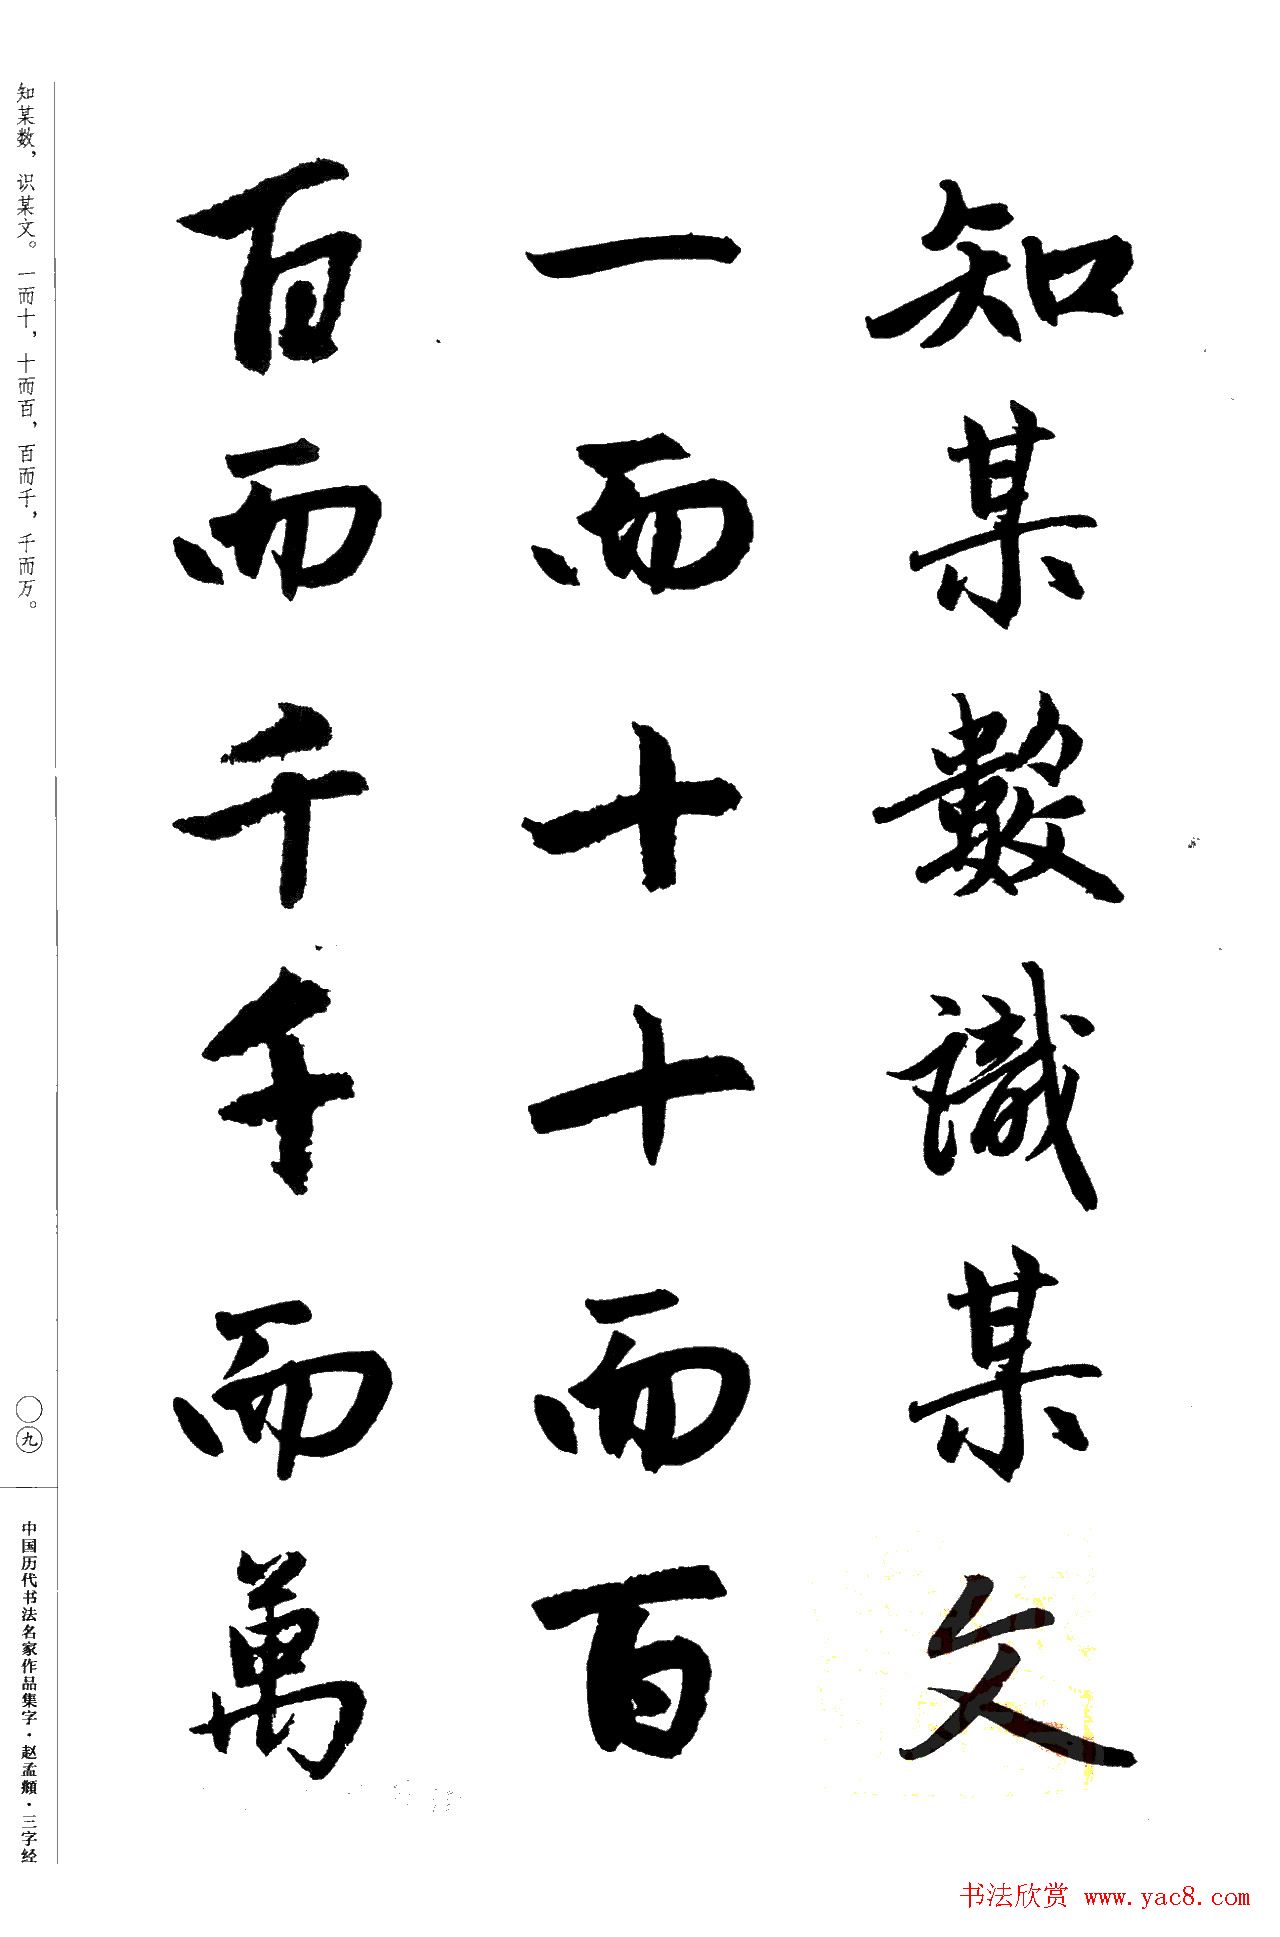 知某數識某文
一而十十而百
百而千千而萬
知某数，识某文。一而十，十而百，百而千，千而万。
〇九
中国历代书法名家作品集字·赵孟頫·三字经
书法欣赏 www.yac8.com